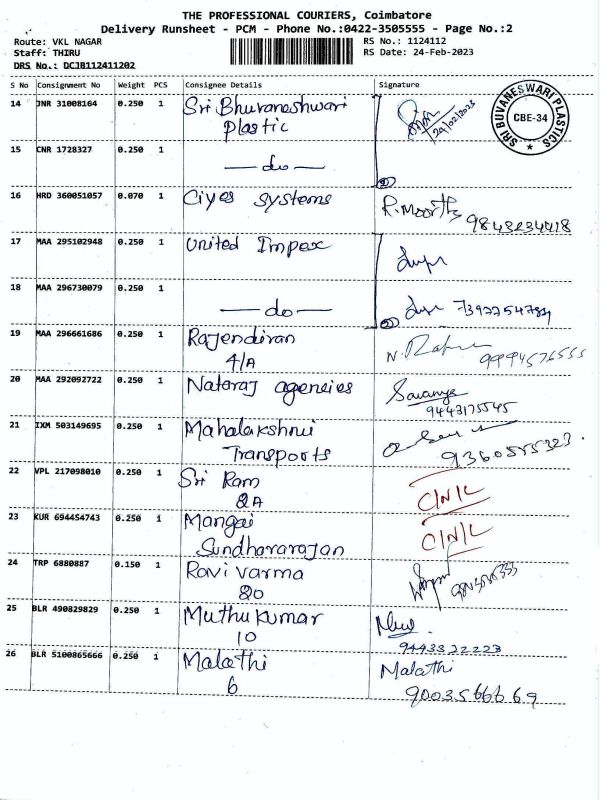 THE PROFESSIONAL COURIERS, Coimbatore
Delivery Runsheet - PCM - Phone No.:0422-3505555 - Page No.:2
Route: VKL NAGAR
RS No.: 1124112
Staff: THIRU
RS Date: 24-Feb-2023
DRS No.: DCJB112411202
S No Consignment No Weight PCS Consignee Details Signature
14 JNR 31008164 0.250 1 Sri Bhuvaneshwari
plastic
24/02/2023
SRI BUVANESWARI PLASTICS
CBE-34
15 CNR 1728327 0.250 1
— do —
16 HRD 360051057 0.070 1 Ciyes systems R. Moorthy
9843234418
17 MAA 295102948 0.250 1 United Impex
18 MAA 296730079 0.250 1
— do —
19 MAA 296661686 0.250 1 Rajendiran
4/A
9994576555
20 MAA 292092722 0.250 1 Nataraj agencies Saranya
9443175545
21 IXM 503149695 0.250 1 Mahalakshmi
Transports 9360585323
22 VPL 217098010 0.250 1 Sri Ram
2A
C/N/L
23 KUR 694454743 0.250 1 Mangai
Sundhararajan
C/N/L
24 TRP 6880887 0.150 1 Ravi varma
20
25 BLR 490829829 0.250 1 Muthukumar
10
9443322223
26 BLR 5100865666 0.250 1 Malathi Malathi
6
9003566669